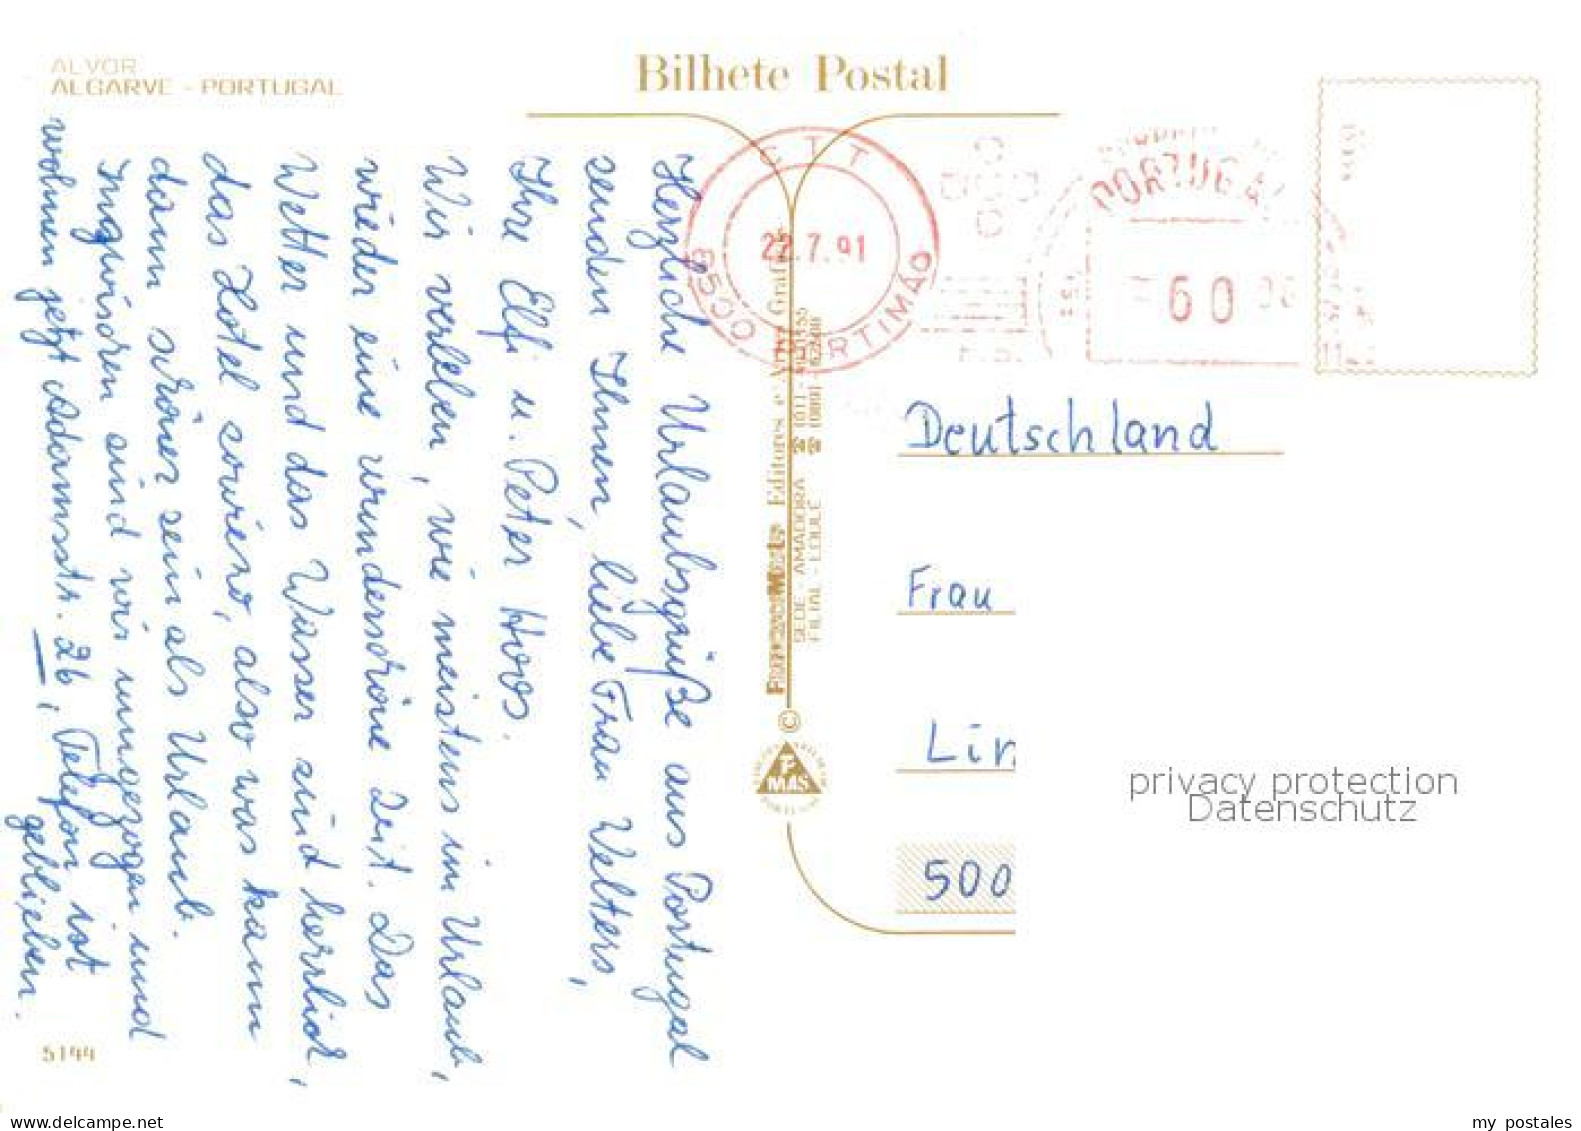 ALVOR
ALGARVE - PORTUGAL
Bilhete Postal
Herzliche Urlaubsgrüße aus Portugal
senden Ihnen, liebe Frau Velters,
Ihre Elfi u. Peter Hoos.
Wir verleben, wie meistens im Urlaub,
wieder eine wunderschöne Zeit. Das
Wetter und das Wasser sind herrlich,
das Hotel sowieso, also was kann
dann schöner sein als Urlaub.
Inzwischen sind wir umgezogen und
wohnen jetzt Adamsstr. 26, Telefon ist
geblieben.
5144
Editores e Artes
SEDE - AMADORA
FILIAL - LOULÉ
©
MAS
CTT
22.7.91
8500 PORTIMÃO
PORTUGAL
60
Deutschland
Frau
Lin
500
privacy protection
Datenschutz
www.delcampe.net
my postales